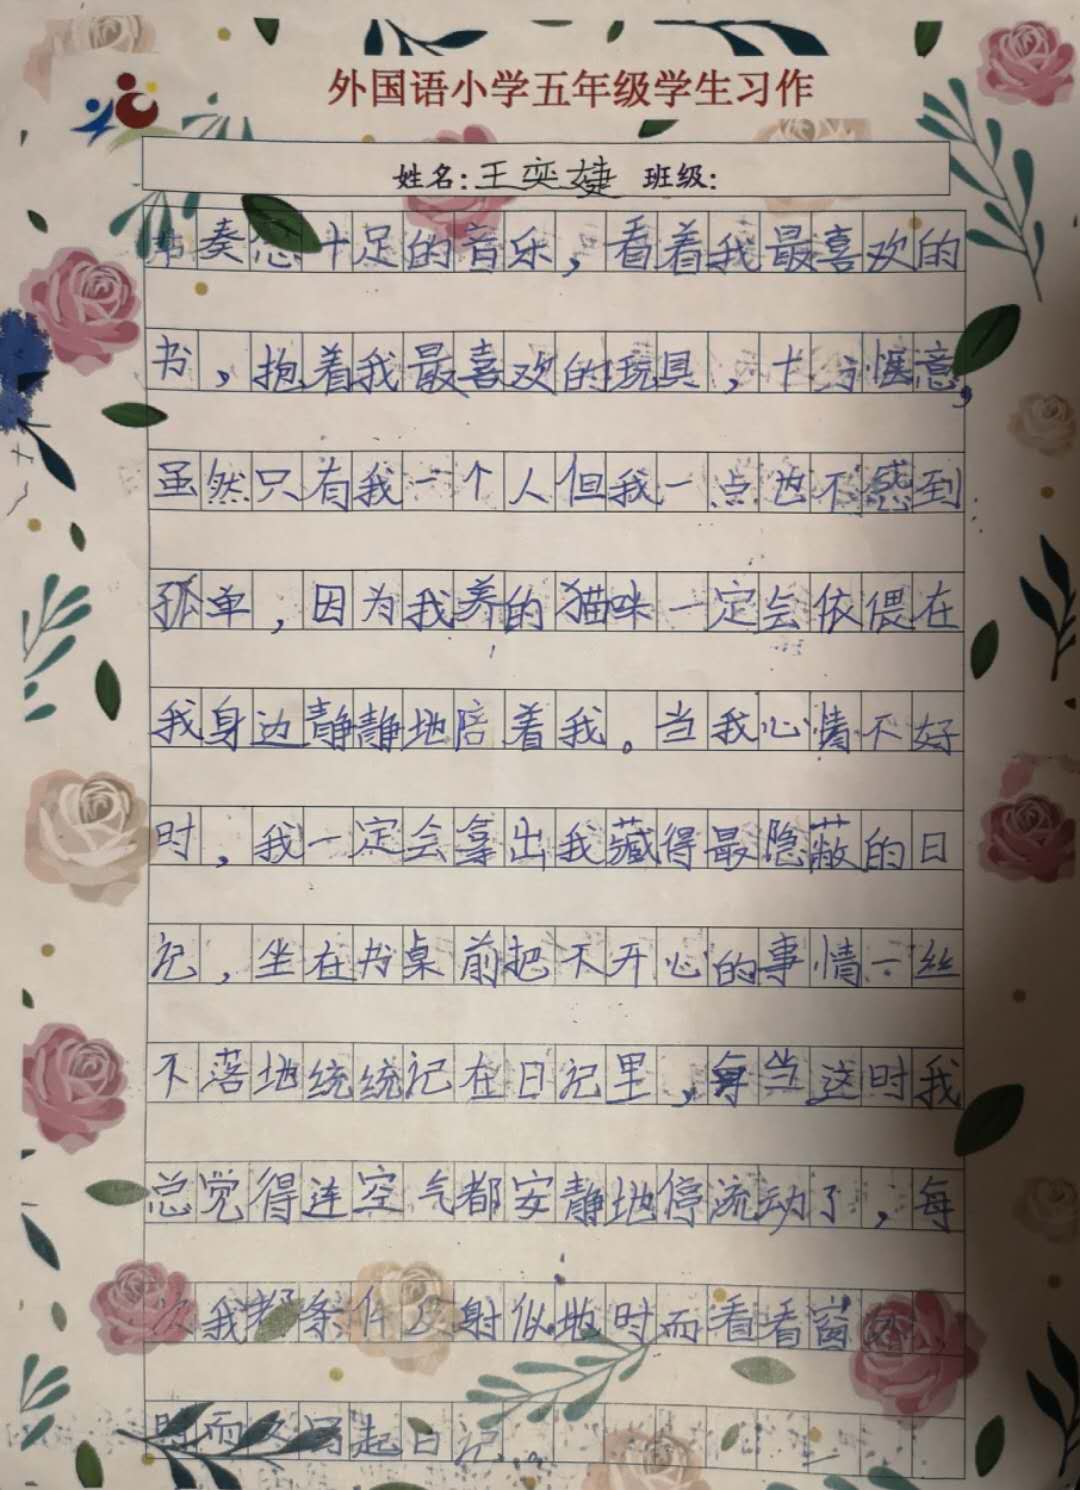 外国语小学五年级学生习作
姓名:王奕婕 班级:
节奏感十足的音乐，看着我最喜欢的
书，抱着我最喜欢的玩具，十分惬意，
虽然只有我一个人但我一点也不感到
孤单，因为我养的猫咪一定会依偎在
我身边静静地陪着我。当我心情不好
时，我一定会拿出我藏得最隐蔽的日
记，坐在书桌前把不开心的事情一丝
不落地统统记在日记里，每当这时我
总觉得连空气都安静地停流动了，每
次我都条件反射似地时而看看窗外，
时而又写起日记。